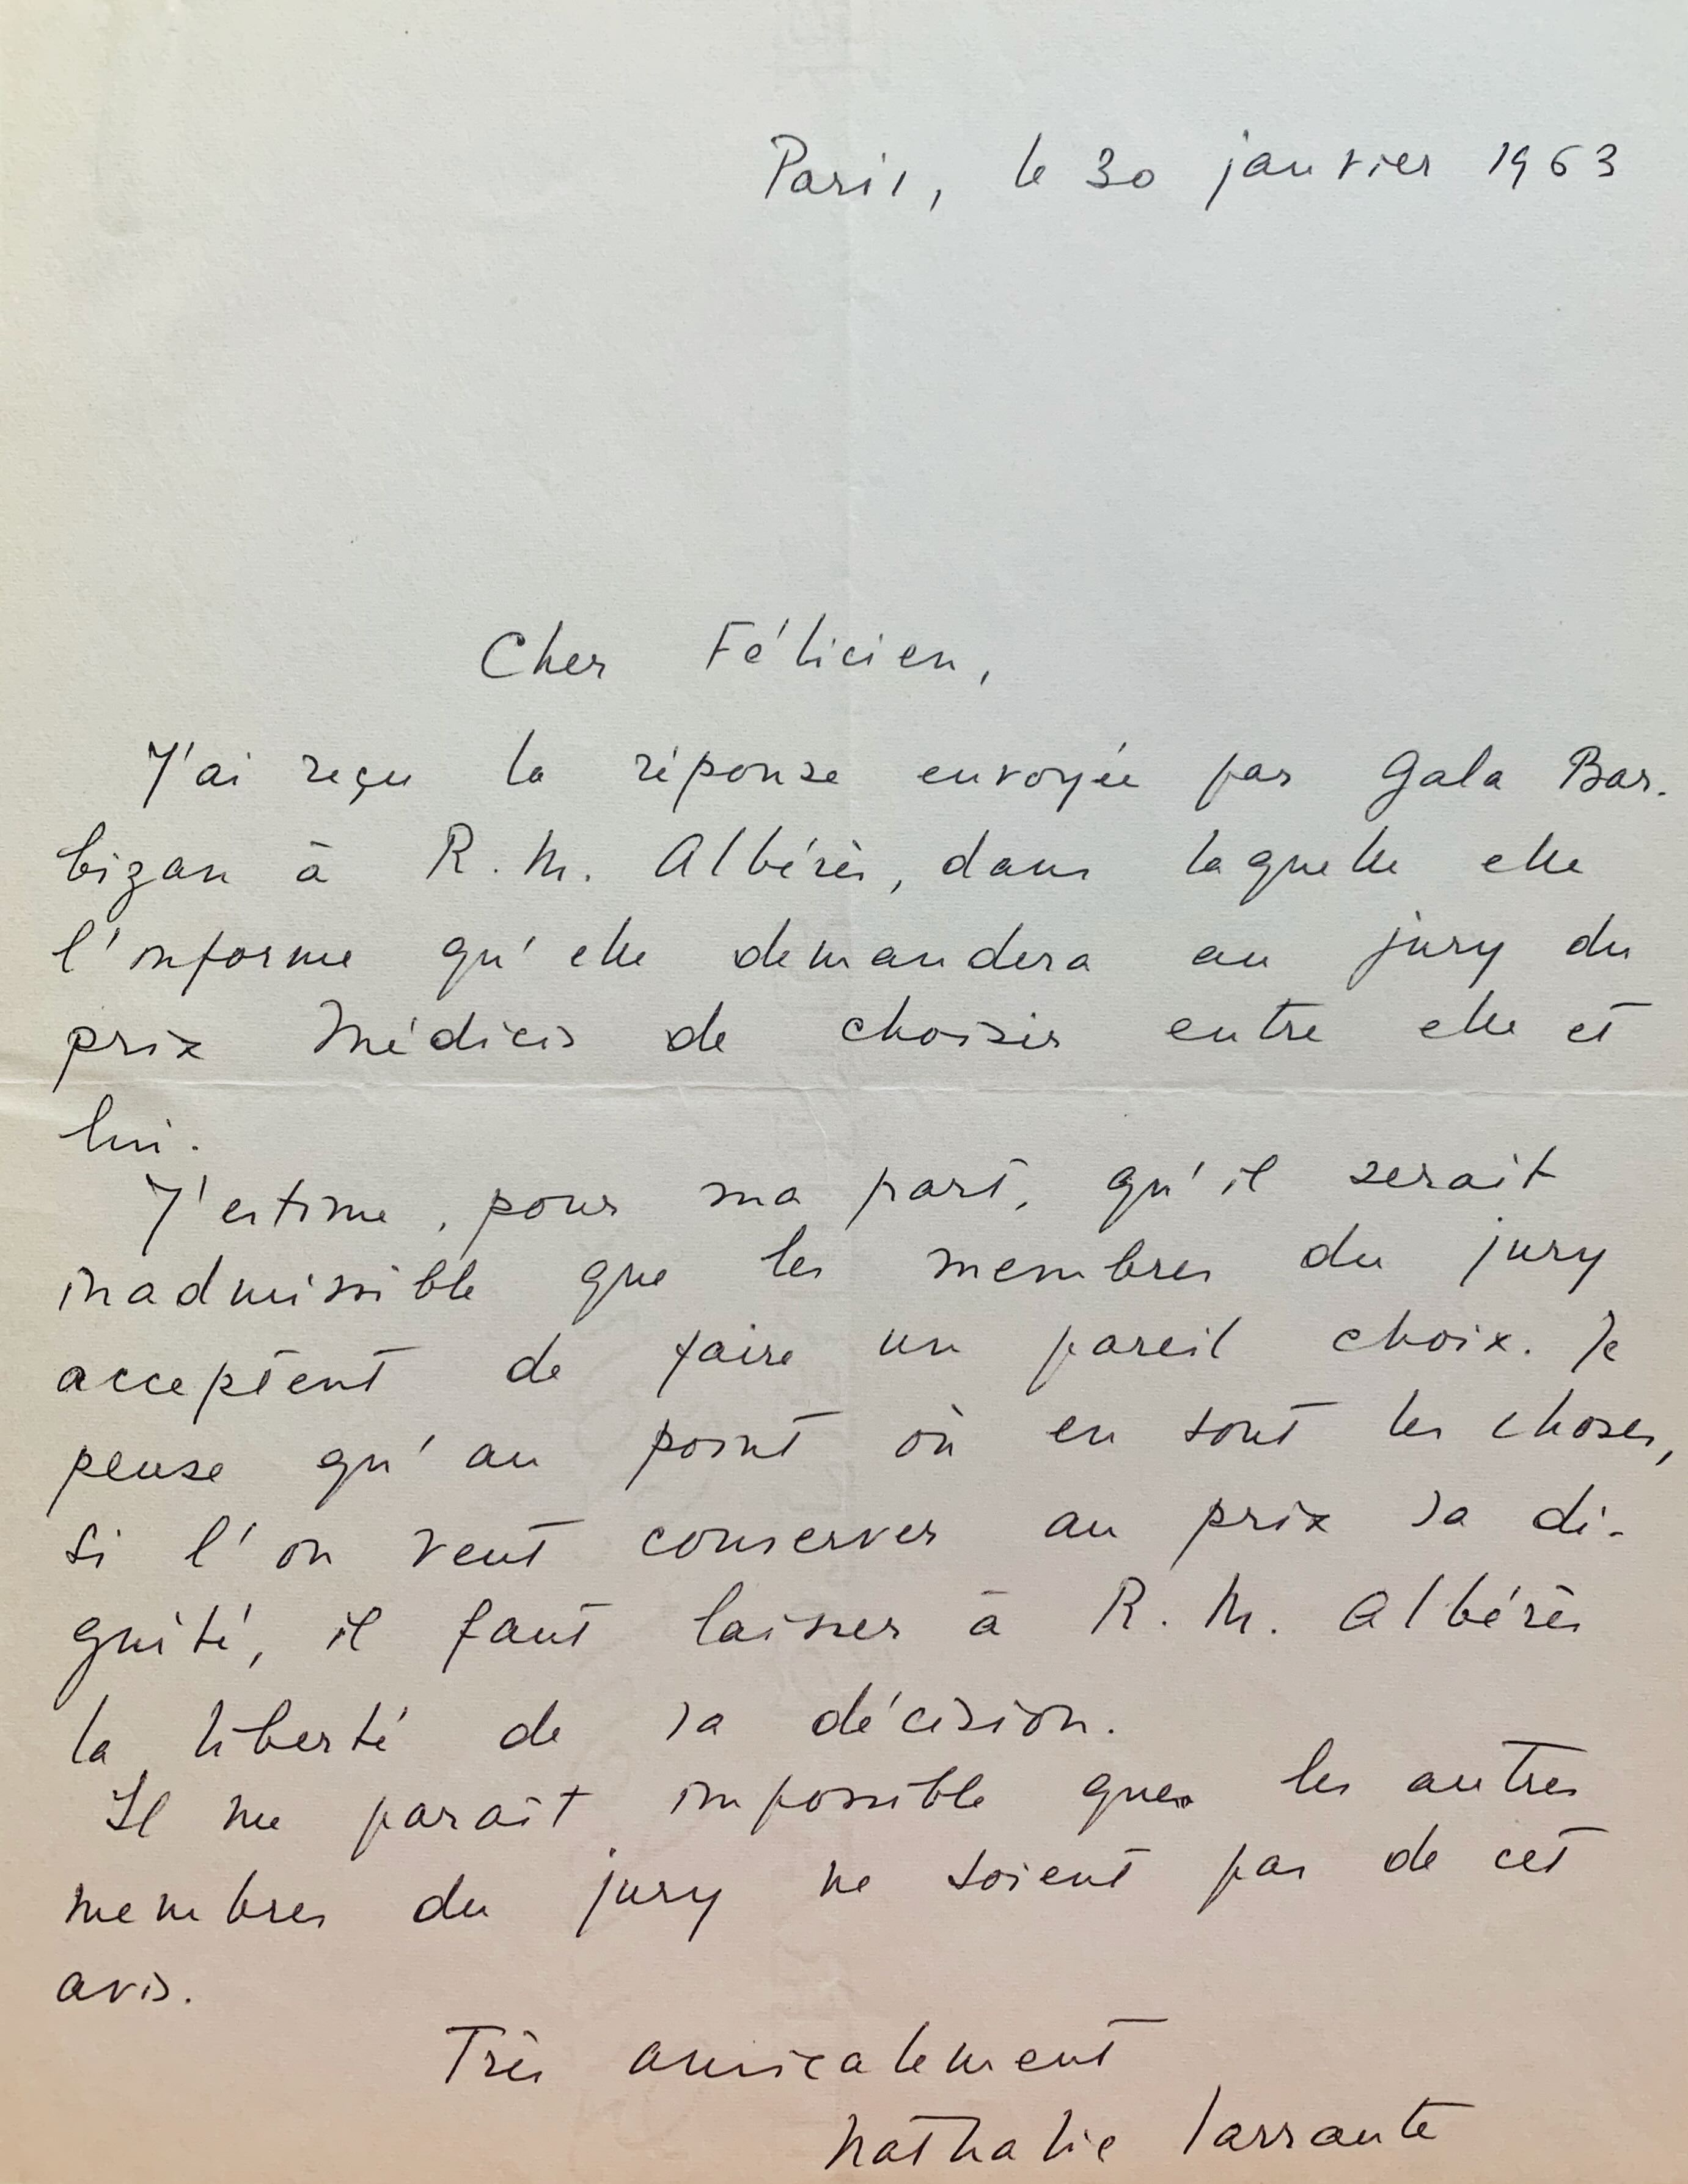 Paris, le 30 janvier 1963
Cher Félicien,
J'ai reçu la réponse envoyée par Gala Bar-
bizan à R. M. Albérès, dans laquelle elle
l'informe qu'elle demandera au jury du
prix Médicis de choisir entre elle et
lui.
J'estime, pour ma part, qu'il serait
inadmissible que les membres du jury
acceptent de faire un pareil choix. Je
pense qu'au point où en sont les choses,
si l'on veut conserver au prix sa di-
gnité, il faut laisser à R. M. Albérès
la liberté de sa décision.
Il me paraît impossible que les autres
membres du jury ne soient pas de cet
avis.
Très amicalement
Nathalie Sarraute